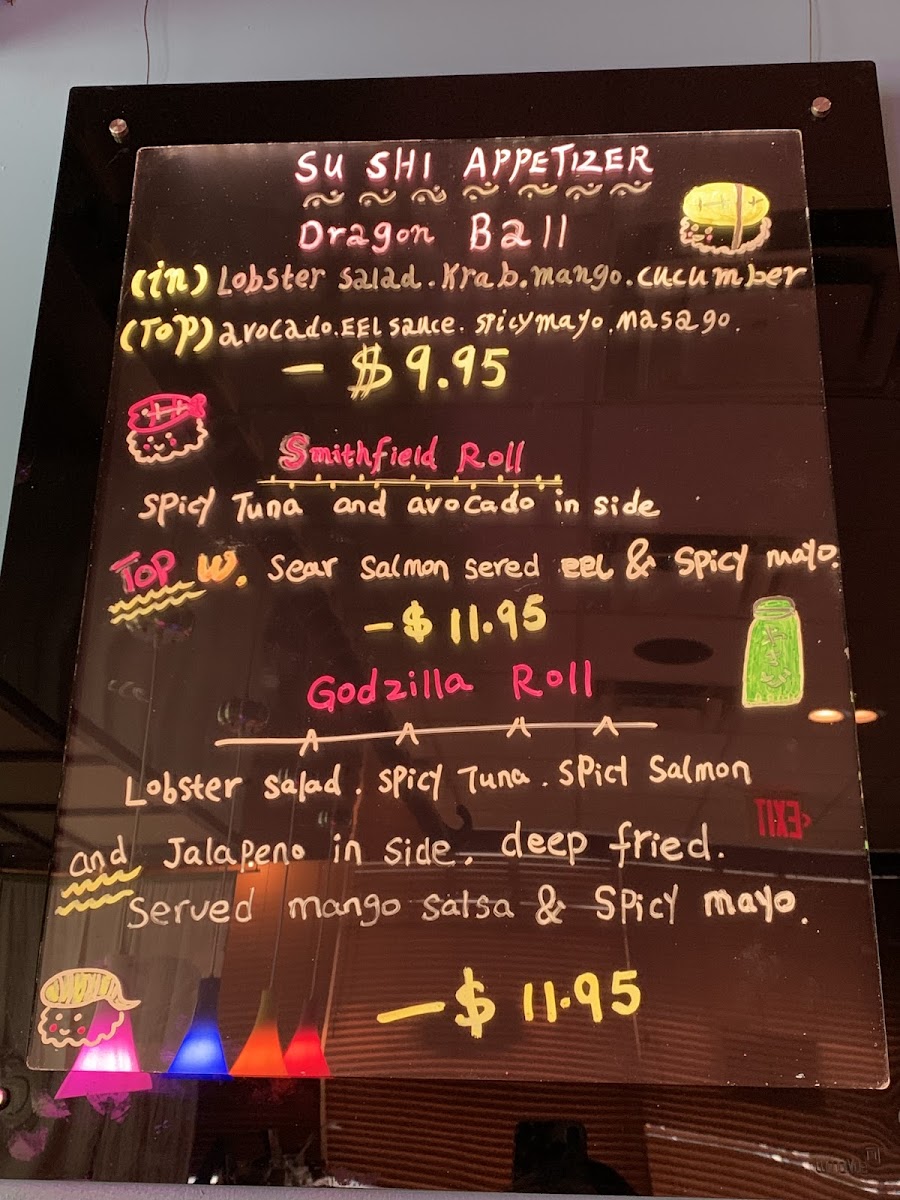 SUSHI APPETIZER
Dragon Ball
(in) Lobster salad. Krab. mango. cucumber
(TOP) avocado. EEL sauce. spicy mayo. masago.
- $9.95
Smithfield Roll
spicy Tuna and avocado in side
TOP W. sear salmon sered eel & spicy mayo.
- $11.95
Godzilla Roll
Lobster salad. spicy Tuna. spicy salmon
and Jalapeno in side. deep fried.
served mango salsa & spicy mayo.
- $11.95
EXIT